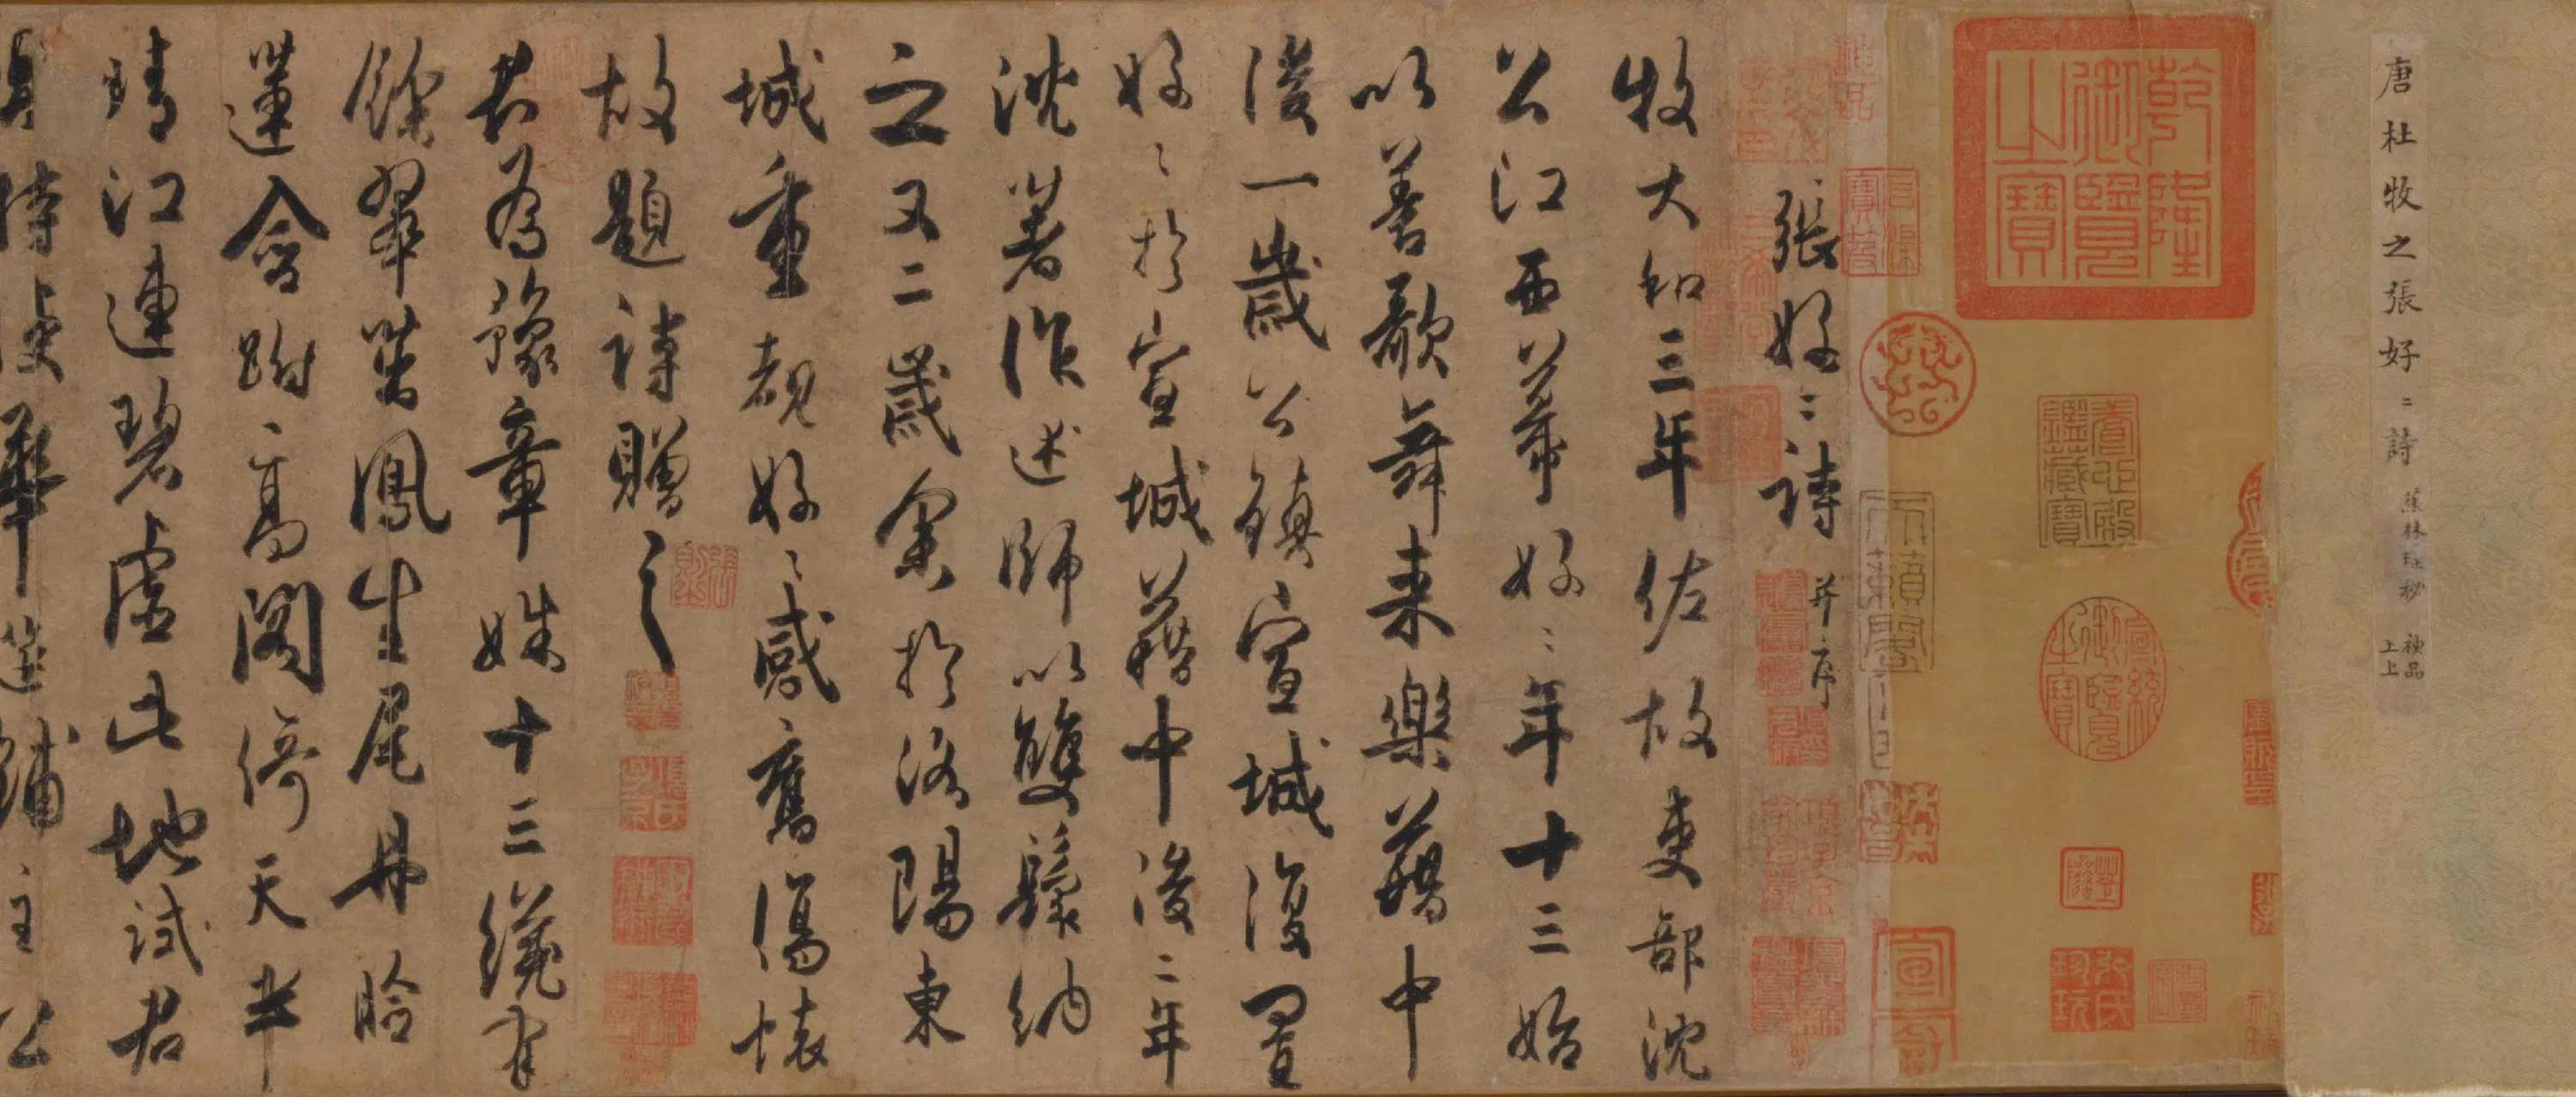 唐杜牧之張好〻詩 蕉林珍秘 神品上上
乾隆御覽之寶
養心殿鑑藏寶
宣統御覽之寶
張好〻詩 并序
牧大和三年佐故吏部沈
公江西幕好〻年十三始
以善歌舞来樂籍中
後一歲公鎮宣城復置
好〻於宣城籍中後二年
沈著作述師以雙鬟納
之又二歲余於洛陽東
城重覩好〻感舊傷懐
故題詩贈之
君為豫章姝十三纔有
餘翠茁鳳生尾丹臉
蓮含跗高閣倚天半
晴江連碧虛此地試君
唱特使華筵鋪主公